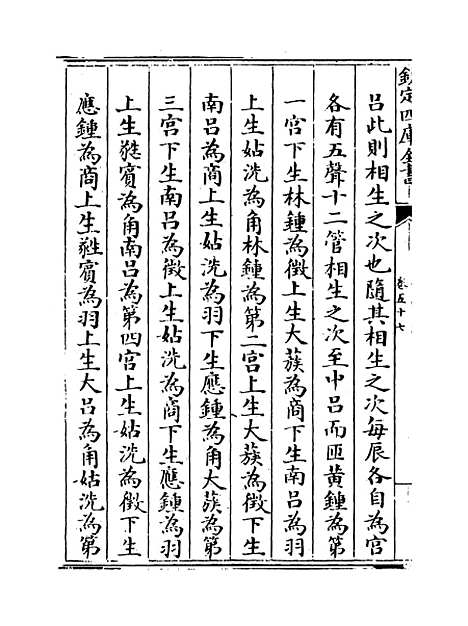 欽定四庫全書
卷五十七
呂此則相生之次也隨其相生之次每辰各自為宮
各有五聲十二管相生之次至中呂而匝黃鍾為第
一宮下生林鍾為徵上生大蔟為商下生南呂為羽
上生姑洗為角林鍾為第二宮上生大蔟為徵下生
南呂為商上生姑洗為羽下生應鍾為角大蔟為第
三宮下生南呂為徵上生姑洗為商下生應鍾為羽
上生蕤賓為角南呂為第四宮上生姑洗為徵下生
應鍾為商上生蕤賓為羽上生大呂為角姑洗為第